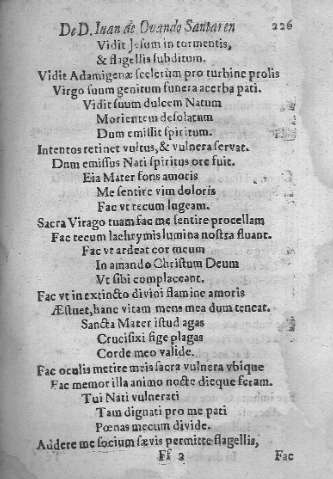 De D. Iuan de Ouando Santaren 226
Vidit Jesum in tormentis,
& flagellis subditum.
Vidit Adamigenæ scelerum pro turbine prolis
Virgo suum genitum funera acerba pati.
Vidit suum dulcem Natum
Morientem desolatum
Dum emissit spiritum.
Intentos retinet vultus, & vulnera servat.
Dum emissus Nati spiritus ore fuit.
Eia Mater fons amoris
Me sentire vim doloris
Fac vt tecum lugeam.
Sacra Virago tuam fac me sentire procellam
Fac tecum lachrymis lumina nostra fluant.
Fac vt ardeat cor meum
In amando Christum Deum
Vt sibi complaceant.
Fac vt inextincto divini flamine amoris
Æstuet, hanc vitam mens mea dum teneat.
Sancta Mater istud agas
Crucifixi fige plagas
Corde meo valide.
Fac oculis metire meis sacra vulnera vbique
Fac memor illa animo nocte dieque feram.
Tui Nati vulnerati
Tam dignati pro me pati
Pœnas mecum divide.
Audere me socium sævis permitte flagellis,
Ff 2 Fac